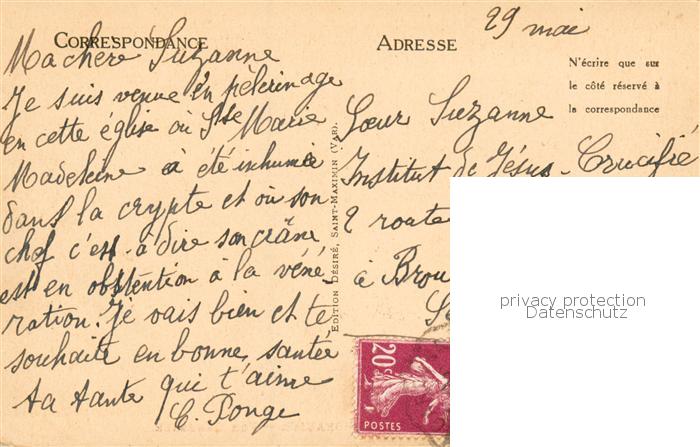 CORRESPONDANCE
Ma chère Suzanne
Je suis venue en pèlerinage
en cette église où Ste Marie
Madeleine a été inhumée
dans la crypte et où son
chef c'est à dire son crâne
est en obstention à la véné
ration. Je vais bien et te
souhaite en bonne santée
ta tante qui t'aime
C. Ponge
EDITION DÉSIRÉ, SAINT-MAXIMIN (VAR).
29 mai
ADRESSE
N'écrire que sur
le côté réservé à
la correspondance
Sœur Suzanne
Institut de Jésus-Crucifié
9 route
à Brou
privacy protection
Datenschutz
20c
POSTES